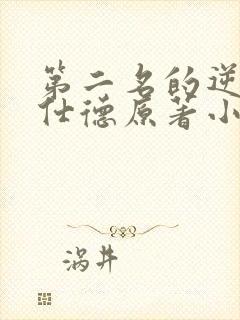 第二名的逆
仕德原著小
涡井